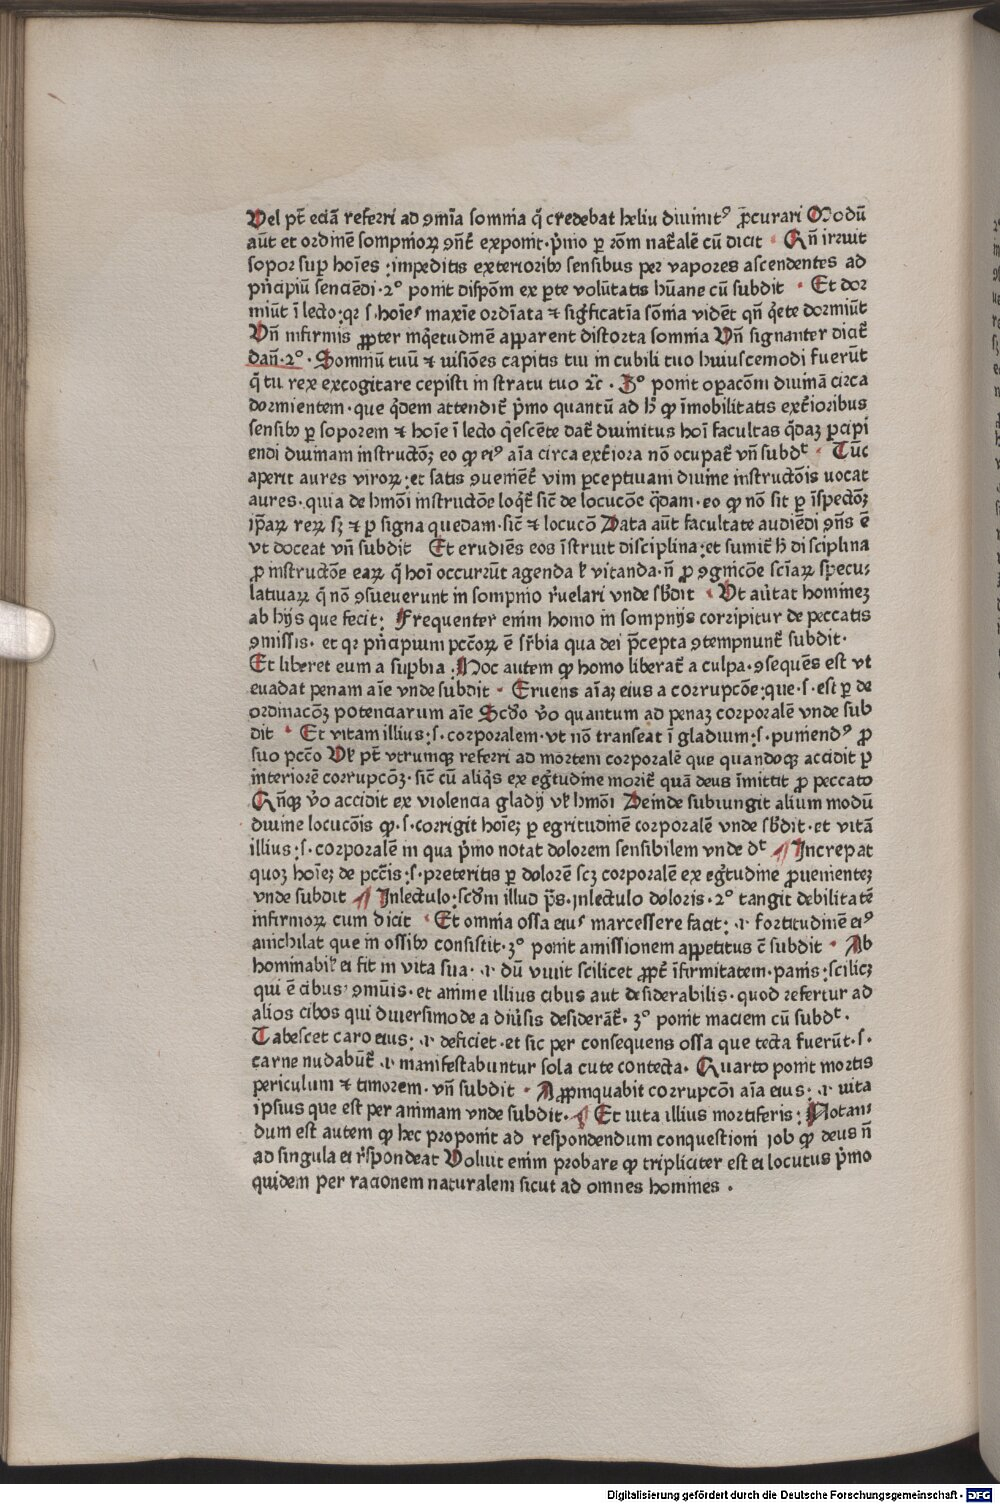 Vel pt̄ eciā referri ad ꝯmīa somnia q̄ credebat heliu diuinitꝰ p̄curari Modū
aūt et ordinē sompnioꝝ ꝯn̄t̄ exponit·p̍mo ꝑ rōm nat̄alē cū dicit · Qn̄ irruit
sopor suꝑ hoīes :impeditis exterioribꝰ sensibus per vapores ascendentes ad
pn̍cipiū senciēdi·2° ponit dispōm ex ꝑte volūtatis hūane cū subdit · Et dor
miūt ī lecto:qr s·hoīes maxīe ordīata ⁊ sig̍ficatīa sōmia vidēt qn̄ q̍ete dormiūt
Vn̄ infirmis ꝓpter inq̍etudinē apparent distorta somnia Vn̄ signanter dicit̄
dan̄·2°·Somniū tuū ⁊ uisiōes capitis tui in cubili tuo huiuscemodi fuerūt
q̄ tu rex excogitare cepisti in stratu tuo ⁊c̄ · 3° ponit oꝑacōm diuinā circa
dormientem·que q̍dem attendit̄ p̍mo quantū ad h̄ ꝙ īmobilitatis ext̄ioribus
sensibꝰ ꝑ soporem ⁊ hoīe ī lecto q̍escēte dat̄ diuinitus hoī facultas q̄daꝫ ꝑcipi
endi diuinam instructōꝫ eo ꝙ eiꝰ aīa circa ext̄iora nō ocupat̄ vn̄ subdᵗ · Tūc
aperit aures viroꝝ:et satis ꝯuenēt̄ vim ꝑceptiuam diuine instructōis uocat
aures·quia de hmōi instructōe loq̍t̄ sic̄ de locucōe q̄dam·eo ꝙ nō sit ꝑ īspectōꝫ
ip̄aꝝ reꝝ sꝫ ⁊ ꝑ signa quedam·sic̄ ⁊ locucō Data aūt facultate audiēdi ꝯn̄s ē
vt doceat vn̄ subdit Et erudiēs eos īstruit disciplina:et sumit̄ h̄ disciplina
ꝓ instructōe eaꝝ q̄ hoī occurrūt agenda ł vitanda·n̄ ꝓ ꝯgnicōe scīaꝝ specu⸗
latiuaꝝ q̄ nō ꝯsueuerunt in sompnio r̍uelari vnde sb̍dit · Vt au̍tat homineꝫ
ab hijs que fecit: Frequenter enim homo in sompnijs corripitur de peccatis
ꝯmissis· et qr pn̍cipium pcc̄oꝝ ē sr̍bia qua dei p̄cepta ꝯtempnunt̄ subdit·
Et liberet eum a suꝑbia·Hoc autem ꝙ homo liberat̄ a culpa·ꝯsequēs est vt
euadat penam aīe vnde subdit · Eruens aīaꝫ eius a corrupcōe:que·s·est ꝑ de
ordinacōꝫ potenciarum aīe Scdo v̍o quantum ad penaꝫ corporalē vnde sub
dit · Et vitam illius:s·corporalem·vt nō transeat ī gladium:s·puniendꝰ ꝓ
suo pccō Vł pt̄ vtrumqꝫ referri ad mortem corporalē que quandoqꝫ accidit ꝑ
interiorē corrupcōꝫ·sic̄ cū aliq̍s ex eg̍tudine morit̄ quā deus īmittit ꝓ peccato
Qn̄qꝫ v̍o accidit ex violencia gladij vł hmōi Deinde subiungit alium modū
diuine locucōis ꝙ·s·corrigit hoīeꝫ ꝑ egritudinē corporalē vnde sb̍dit·et vitā
illius:s·corporalē in qua p̍mo notat dolorem sensibilem vnde dᵗ ¶ Increpat
quoꝫ hoīeꝫ de pcc̄is:s·preteritis ꝑ dolorē scꝫ corporalē ex eg̍tudine ꝓuenienteꝫ
vnde subdit ¶ Inlectulo:scdm illud p̄s·inlectulo doloris·2° tangit debilitatē
infirmoꝝ cum dicit · Et omnia ossa eius marcessere facit: ·i· fortitudinē eiꝰ
anichilat que in ossibꝰ consistit·3° ponit amissionem appetitus c̄ subdit · Ab
hominabił ei fit in vita sua· ·i· dū viuit scilicet ꝓpt̄ īfirmitatem·panis:scilicꝫ
qui ē cibus ꝯmūis·et anime illius cibus aut desiderabilis·quod refertur ad
alios cibos qui diuersimode a diu̍sis desiderāt̄·3° ponit maciem cū subdᵗ·
Tabescet caro eius: ·i· deficiet·et sic per consequens ossa que tecta fuerūt·s·
carne nudabūt̄ ·i· manifestabuntur sola cute contecta· Quarto ponit mortis
periculum ⁊ timorem·vn̄ subdit · Appropinquabit corrupcōi aīa eius: ·i· uita
ipsius que est per animam vnde subdit·¶ Et uita illius mortiferis: Notan⸗
dum est autem ꝙ hec proponit ad respondendum conquestioni iob ꝙ deus n̄
ad singula ei r̍spondeat Voluit enim probare ꝙ tripliciter est ei locutus p̍mo
quidem per racionem naturalem sicut ad omnes homines .
Digitalisierung gefördert durch die Deutsche Forschungsgemeinschaft - DFG